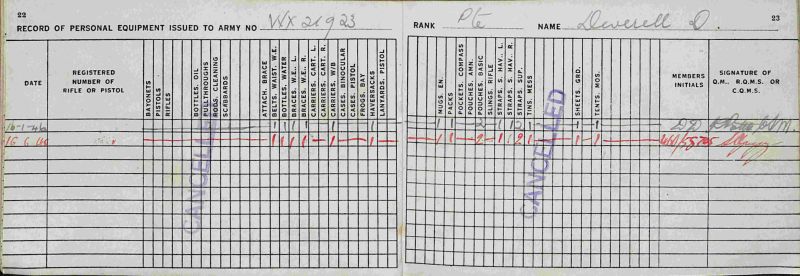 22
RECORD OF PERSONAL EQUIPMENT ISSUED TO ARMY NO WX 21923
RANK Pte NAME Deverell D.
23
DATE
REGISTERED NUMBER OF RIFLE OR PISTOL
BAYONETS
PISTOLS
RIFLES
BOTTLES, OIL
PULLTHROUGHS
RODS, CLEANING
SCABBARDS
ATTACH. BRACE
BELTS, WAIST, W.E.
BOTTLES, WATER
BRACES, W.E., L.
BRACES, W.E., R.
CARRIERS, CART. L.
CARRIERS, CART. R.
CARRIERS, W/B
CASES, BINOCULAR
CASES, PISTOL
FROGS, BAY
HAVERSACKS
LANYARDS, PISTOL
MUGS, EN.
PACKS
POCKETS, COMPASS
POUCHES, AMN.
POUCHES, BASIC
SLINGS, RIFLE
STRAPS, S. HAV., L.
STRAPS, S. HAV., R.
STRAPS, SUP.
TINS, MESS
SHEETS, GRD.
TENTS, MOS.
MEMBERS INITIALS
SIGNATURE OF Q.M., R.Q.M.S. OR C.Q.M.S.
16-1-46 1 1 1 1 1 1 1 1 1 2 1 1 2 1 1 1 DD
1 1 1 1 1 1 1 1 1 2 1 1 2 1 1 1
CANCELLED
CANCELLED